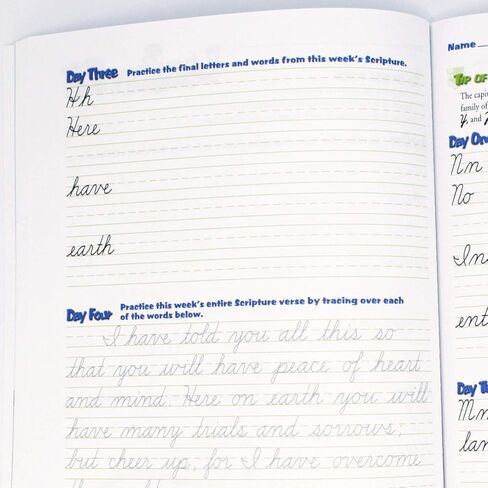 Day Three Practice the final letters and words from this week's Scripture.
Hh
Here
have
earth
Day Four Practice this week's entire Scripture verse by tracing over each
of the words below.
I have told you all this so
that you will have peace of heart
and mind. Here on earth you will
have many trials and sorrows;
but cheer up, for I have overcome
Name
Tip of
The capi
family of
Y, and
Day One
Nn
No
In
ent
Day T
Mm
lan